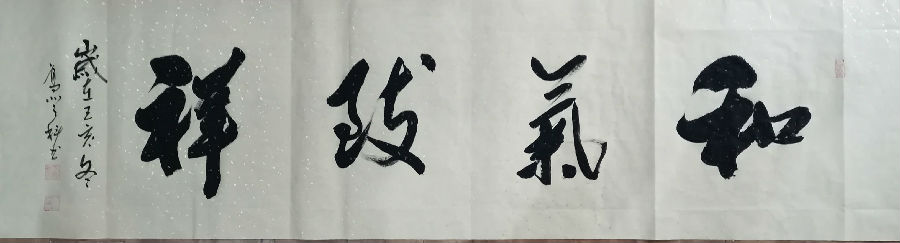 和氣致祥
歲在己亥冬